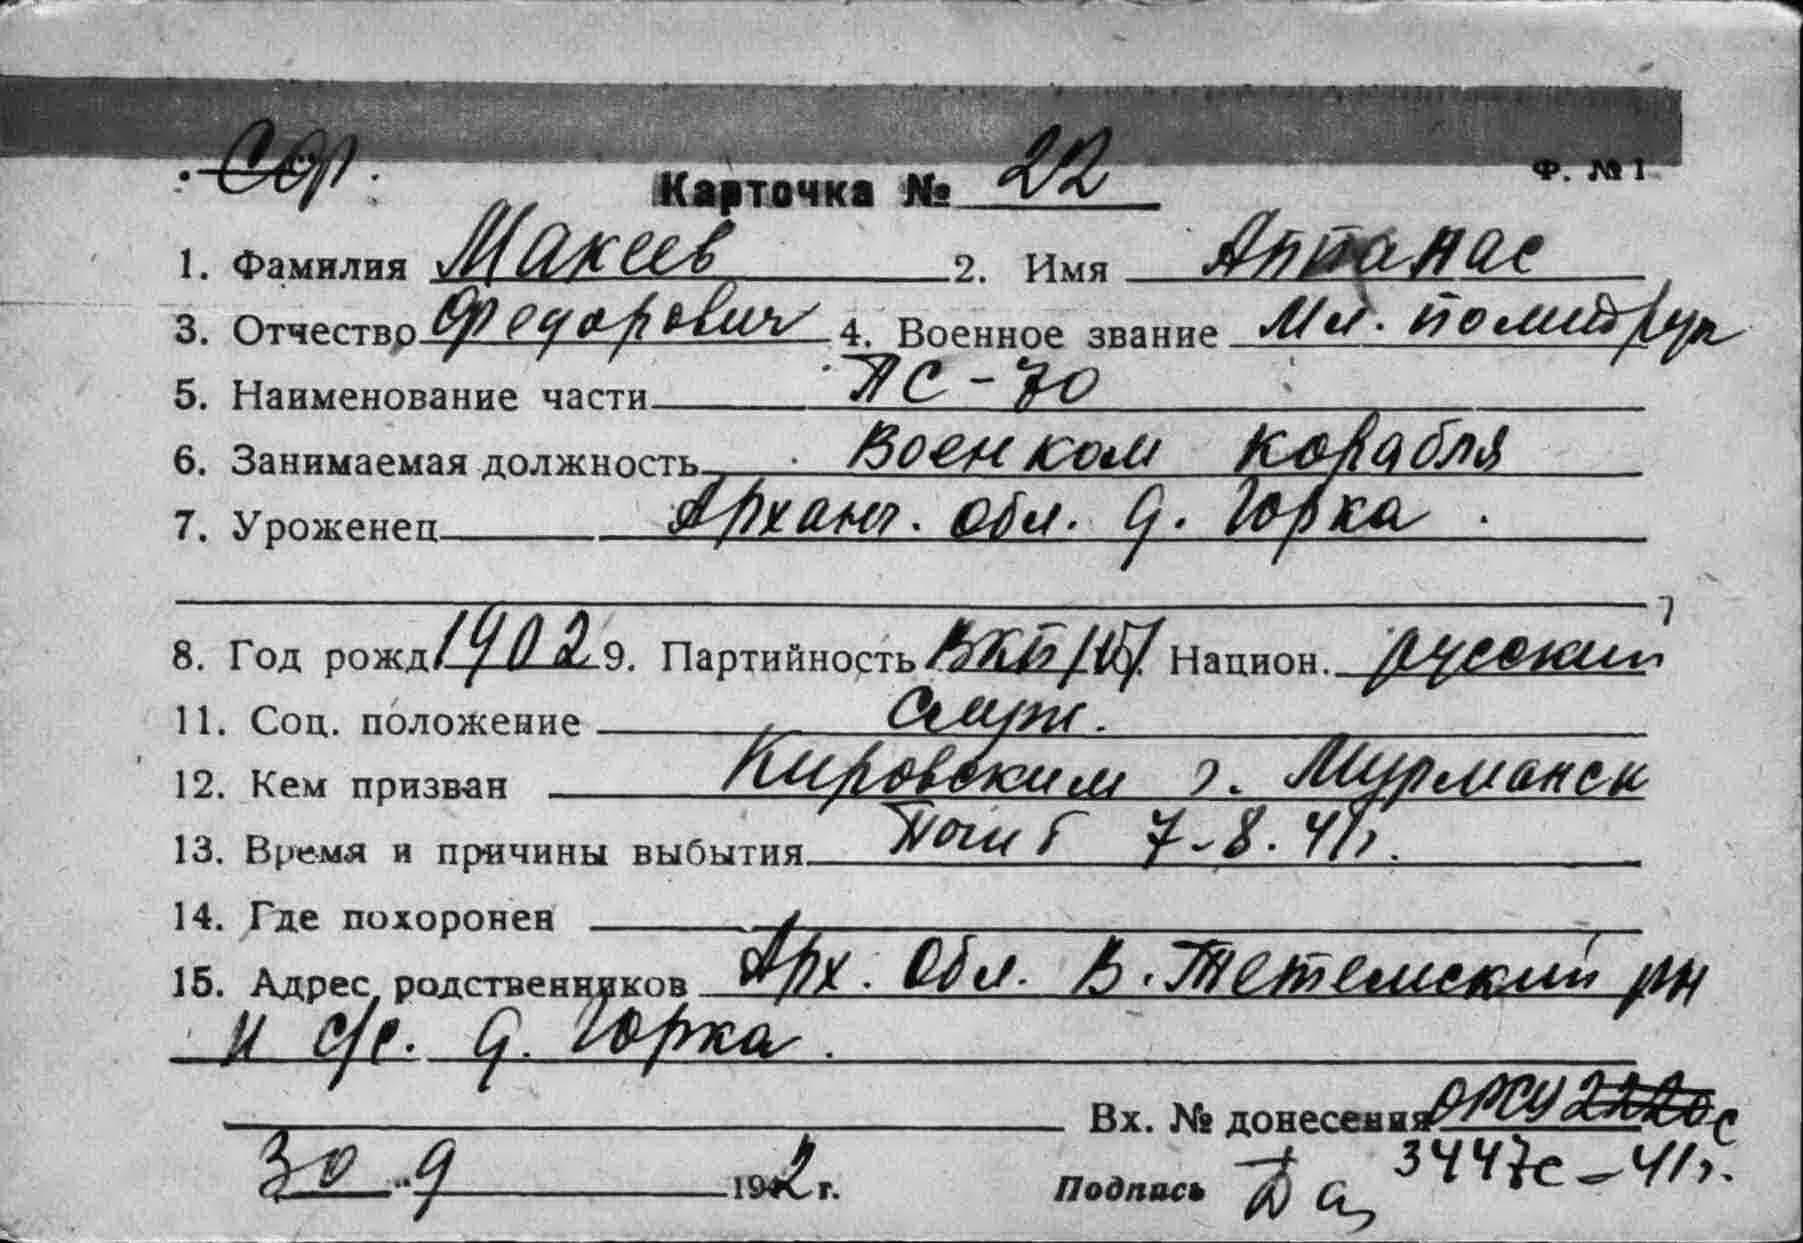 Ф. № 1
Карточка № 22
1. Фамилия Макеев 2. Имя Аппанас
3. Отчество Федорович 4. Военное звание Мл. политрук
5. Наименование части ПС-70
6. Занимаемая должность Военком корабля
7. Уроженец Арханг. обл. д. Горка.
8. Год рожд 1902 9. Партийность ВКП/б/. Национ. русский
11. Соц. положение Служ.
12. Кем призван Кировским г. Мурманск
13. Время и причины выбытия Погиб 7-8.41г.
14. Где похоронен
15. Адрес родственников Арх. Обл. В. Тетемский рн
и с/с. д. Горка.
Вх. № донесения
30 " 9 1942 г. Подпись 3447с-41г.